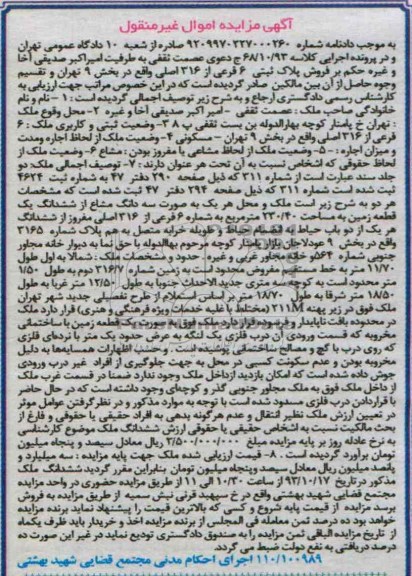 آگهی مزایده اموال غیرمنقول
به موجب دادنامه شماره ۹۲۰۹۹۷۰۲۲۷۰۰۰۲۶۰ صادره از شعبه ۱۰ دادگاه عمومی تهران
و در پرونده اجرایی کلاسه ۶۸/۱۰/۹۳ ج دعوی عصمت ثقفی به طرفیت امیراکبر صدیقی آخا
و غیره حکم بر فروش پلاک ثبتی ۶ فرعی از ۳۱۶ اصلی واقع در بخش ۹ تهران و تقسیم
وجوه حاصل از آن بین مالکین صادر گردیده است که در این خصوص مراتب جهت ارزیابی به
کارشناس رسمی دادگستری ارجاع و به شرح زیر توصیف اجمالی گردیده است : ۱- نام و نام
خانوادگی صاحب ملک : عصمت ثقفی - امیر اکبر صدیقی آخا و غیره ۲- محل وقوع ملک
: تهران خ پامنار کوچه بهارالدوله بن بست ثقفی پ ۸ ۳- وضعیت ثبتی و کاربری ملک : ۶
فرعی از ۳۱۶ اصلی واقع در بخش ۹ تهران - مسکونی ۴- وضعیت ملک از لحاظ اجاره ومدت
و میزان اجاره : - ۵- وضعیت ملک از لحاظ مشاعی یا مفروز بودن : مشاع ۶- وضعیت ملک از
لحاظ حقوقی که اشخاص نسبت به آن تحت هر عنوان دارند : ۷- توصیف اجمالی ملک: دو
جلد سند عبارت است از شماره ۳۱۱ که ذیل صفحه ۲۹۰ دفتر ۴۷ به شماره ثبت ۴۶۲۴
ثبت شده است شماره ۳۱۱ که ذیل صفحه ۲۹۴ دفتر ۴۷ ثبت شده است که مشخصات
هر دو به شرح زیر است ملک و محل هر یک به صورت سه دانگ مشاع از ششدانگ یک
قطعه زمین به مساحت ۲۳۰/۴۰ مترمربع به شماره ۶ فرعی از ۳۱۶ اصلی مفروز از ششدانگ
هر یک از دو باب حیاط به انضمام حیاط و طویله خرابه متصل به هم پلاک شماره ۳۱۶۵
واقع در بخش ۹ عودلاجان بازار پامنار کوچه مرحوم بهاالدوله با حق نما به دیوار خانه مجاور
جنوبی شماره ۵۶۴ و خانه مجاور غربی و غیره : حدود و مشخصات ملک : شمالا به اول طول
۱۱/۷۰ متر به خط مستقیم مفروض محدود است به زمین شماره ۳۱۶/۷ دوم به طول ۱/۵۰
متر محدود است به کوچه سه متری جدید الاحداث جنوبا به طول ۱۲/۵۰ متر غربا به طول
۱۸/۵۰ متر شرقا به طول ۱۸/۷۰ متر بر اساس استعلام از طرح تفصیلی جدید شهر تهران
ملک فوق در زیر پهنه M۲۱۱ (مختلط با غلبه خدمات ویژه فرهنگی و هنری) قرار دارد ملک
در محدوده بافت ناپایدار و فرسوده قرار دارد ملک فوق به صورت یک قطعه زمین با ساختمانی
مخروبه که قسمت ورودی آن درب فلزی یک لنگه به عرض حدود یک متر با نرده‌ای فلزی
که روی درب با گچ و مصالح ساختمانی پوشیده است . و حسب اظهارات همسایه‌ها به دلیل
مخروبه بودن و عدم سکونت کسی در محل به جهت جلوگیری از افراد غیر درب ورودی
جوش داده شده است که امکان بازدید ازداخل ملک وجود ندارد ضمنا در قسمت غرب ملک
از داخل ملک فوق به ملک مجاور جنوبی گذر و کوچه‌ای وجود داشته است که در حال حاضر
با قراردادن درب فلزی مسدود شده است با توجه به موارد مذکور و در نظرگرفتن عوامل موثر
در تعیین ارزش ملک نظیر انتقال و عدم هرگونه بدهی به افراد حقیقی یا حقوقی و فارغ از
بحث مالکیت نسبت به اشخاص حقیقی یا حقوقی ارزش ششدانگ ملک موضوع کارشناسی
به نرخ عادله روز بر پایه مزایده مبلغ ۳/۵۰۰/۰۰۰/۰۰۰ ریال معادل سیصد و پنجاه میلیون
تومان برآورد گردیده است . ۸- قیمت ارزیابی شده ملک جهت پایه مزایده : سه میلیارد و
پانصد میلیون ریال معادل سیصد وپنجاه میلیون تومان بنابراین مقرر گردید ششدانگ ملک
مذکور در تاریخ ۹۳/۱۰/۱۷ از ساعت ۱۰/۳۰ الی ۱۱ از طریق مزایده حضوری در واحد مزایده
مجتمع قضایی شهید بهشتی واقع در خ سپهبد قرنی نبش سمیه از طریق مزایده به فروش
برسد مزایده از قیمت پایه شروع و کسی که بالاترین قیمت را پیشنهاد نماید برنده مزایده
خواهد بود ده درصد ثمن معامله فی المجلس از برنده مزایده اخذ و خریدار باید ظرف یکماه
از تاریخ مزایده الباقی ثمن مزایده را به صندوق دادگستری تودیع نماید در غیر این صورت ده
درصد دریافتی به نفع دولت ضبط می گردد.
۱۱۰/۱۰۰۹۸۹ اجرای احکام مدنی مجتمع قضایی شهید بهشتی